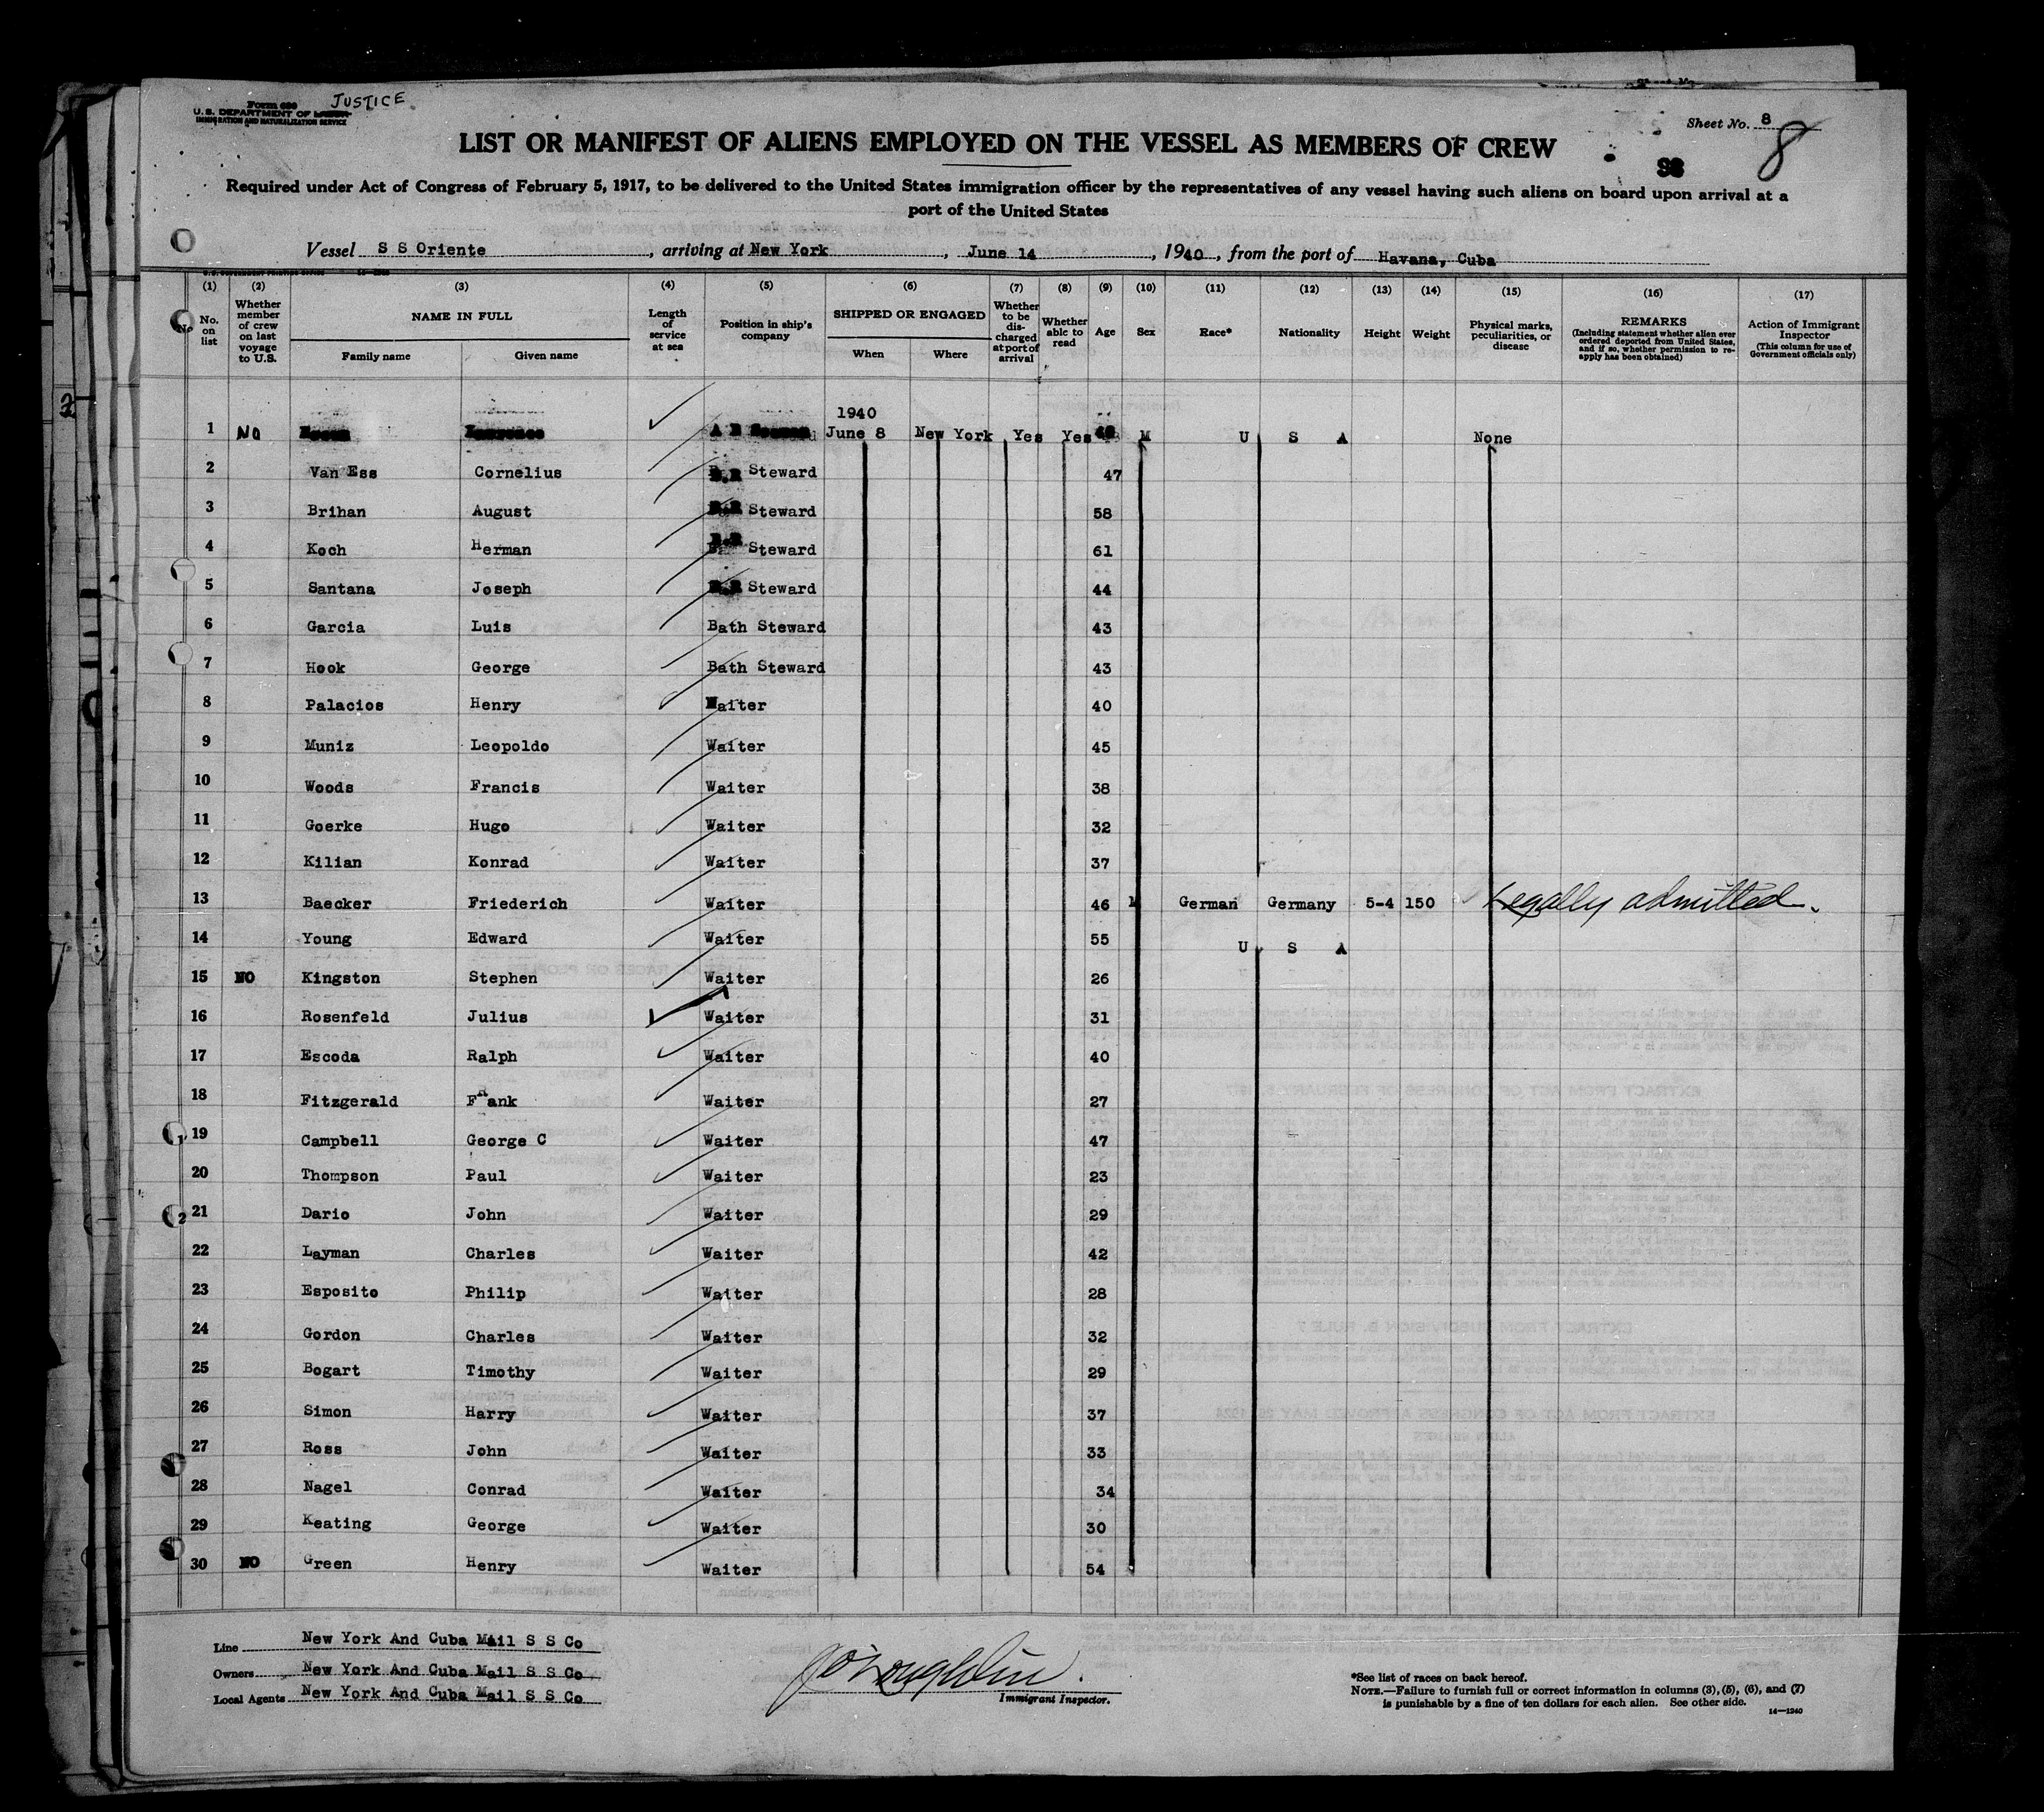 Form 680
U. S. DEPARTMENT OF LABOR JUSTICE
IMMIGRATION AND NATURALIZATION SERVICE
Sheet No. 8
8
LIST OR MANIFEST OF ALIENS EMPLOYED ON THE VESSEL AS MEMBERS OF CREW
Required under Act of Congress of February 5, 1917, to be delivered to the United States immigration officer by the representatives of any vessel having such aliens on board upon arrival at a
port of the United States
Vessel S S Oriente, arriving at New York, June 14, 1940, from the port of Havana, Cuba
(1) No. on list
(2) Whether member of crew on last voyage to U.S.
(3) NAME IN FULL
Family name Given name
(4) Length of service at sea
(5) Position in ship's company
(6) SHIPPED OR ENGAGED
When Where
(7) Whether to be discharged at port of arrival
(8) Whether able to read
(9) Age
(10) Sex
(11) Race*
(12) Nationality
(13) Height
(14) Weight
(15) Physical marks, peculiarities, or disease
(16) REMARKS (Including statement whether alien ever ordered deported from United States, and if so, whether permission to reapply has been obtained)
(17) Action of Immigrant Inspector (This column for use of Government officials only)
1940
1 NO June 8 New York Yes Yes M U S A None
2 Van Ess Cornelius Steward 47
3 Brihan August Steward 58
4 Koch Herman Steward 61
5 Santana Joseph Steward 44
6 Garcia Luis Bath Steward 43
7 Hook George Bath Steward 43
8 Palacios Henry Waiter 40
9 Muniz Leopoldo Waiter 45
10 Woods Francis Waiter 38
11 Goerke Hugo Waiter 32
12 Kilian Konrad Waiter 37
13 Baecker Friederich Waiter 46 M German Germany 5-4 150 Legally admitted.
14 Young Edward Waiter 55 U S A
15 NO Kingston Stephen Waiter 26
16 Rosenfeld Julius Waiter 31
17 Escoda Ralph Waiter 40
18 Fitzgerald Frank Waiter 27
19 Campbell George C Waiter 47
20 Thompson Paul Waiter 23
21 Dario John Waiter 29
22 Layman Charles Waiter 42
23 Esposito Philip Waiter 28
24 Gordon Charles Waiter 32
25 Bogart Timothy Waiter 29
26 Simon Harry Waiter 37
27 Ross John Waiter 33
28 Nagel Conrad Waiter 34
29 Keating George Waiter 30
30 NO Green Henry Waiter 54
Line New York And Cuba Mail S S Co
Owners New York And Cuba Mail S S Co
Local Agents New York And Cuba Mail S S Co
J O'Loughlin.
Immigrant Inspector.
*See list of races on back hereof.
NOTE.—Failure to furnish full or correct information in columns (3), (5), (6), and (7)
is punishable by a fine of ten dollars for each alien. See other side.
14—1240